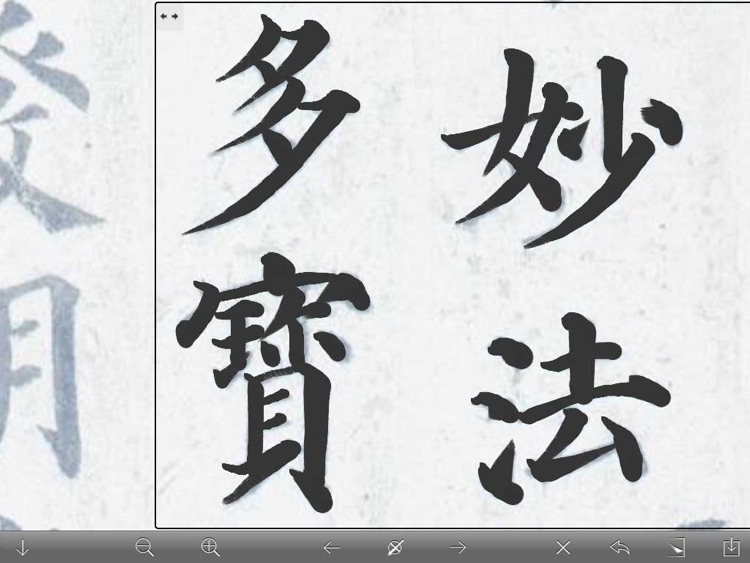 妙法
多寶